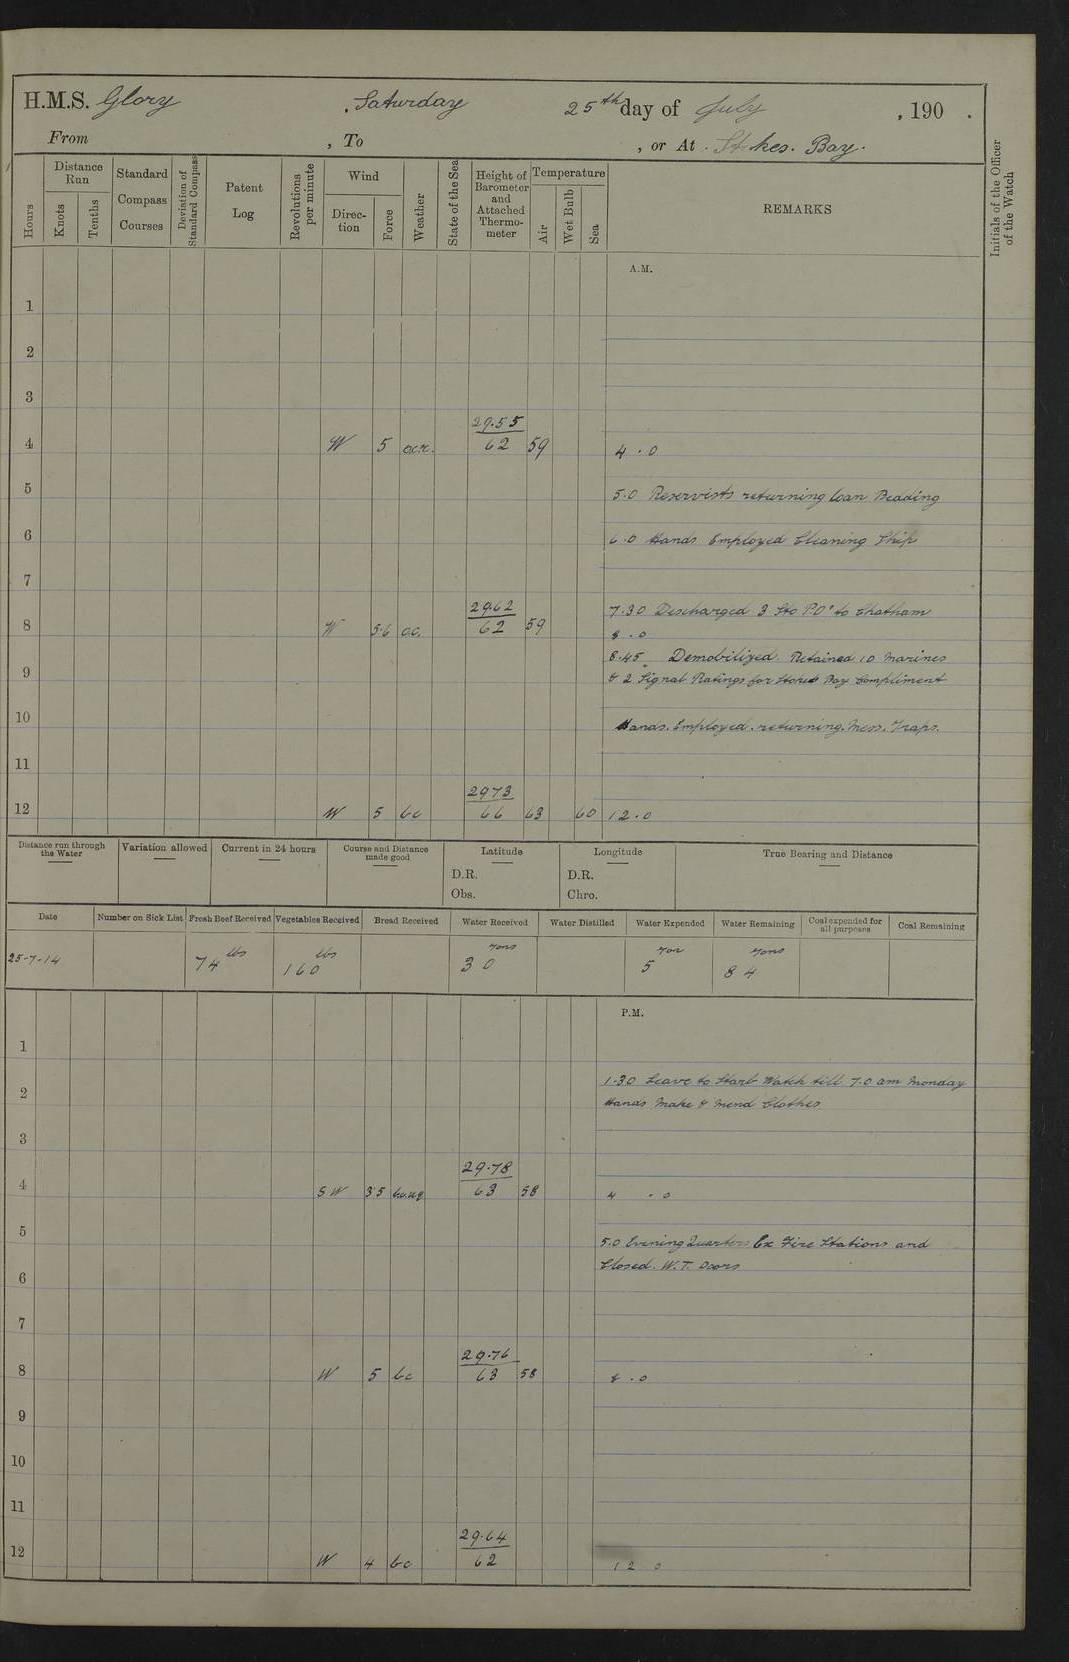 H.M.S. Glory , Saturday 25th day of July , 190 .
From , To , or At Stokes Bay.
Hours
Distance Run
Knots
Tenths
Standard Compass Courses
Deviation of Standard Compass
Patent Log
Revolutions per minute
Wind
Direction
Force
Weather
State of the Sea
Height of Barometer and Attached Thermometer
Temperature
Air
Wet Bulb
Sea
REMARKS
Initials of the Officer of the Watch
A.M.
1
2
3
29.55
4 W 5 62 59 4.0
5 5.0 Reservists returning loan Beading
6 6.0 Hands Employed Cleaning Ship
7
2962 7.30 Discharged 3 Sto P.O's to Chatham
8 W 5.6 o.c. 62 59 8.0
8.45 Demobilized. Retained 10 Marines
9 & 2 Signal Ratings for Stokes Bay Compliment
10 Hands. Employed. returning. Mess. Traps.
11
2973
12 W 5 bc 66 63 60 12.0
Distance run through the Water
Variation allowed
Current in 24 hours
Course and Distance made good
Latitude
D.R.
Obs.
Longitude
D.R.
Chro.
True Bearing and Distance
Date
Number on Sick List
Fresh Beef Received
Vegetables Received
Bread Received
Water Received
Water Distilled
Water Expended
Water Remaining
Coal expended for all purposes
Coal Remaining
25-7-14 74 lbs 160 lbs 30 Tons 5 Ton 84 Tons
P.M.
1
1.30 Leave to Starb Watch till 7.0 am Monday
2 Hands Make & Mend Clothes
3
29.78
4 SW 3.5 63 58 4.0
5 5.0 Evening Quarters Ex Fire Stations and
Closed. W.T. Doors
6
7
29.76
8 W 5 bc 63 58 8.0
9
10
11
29.64
12 W 4 bc 62 12 0